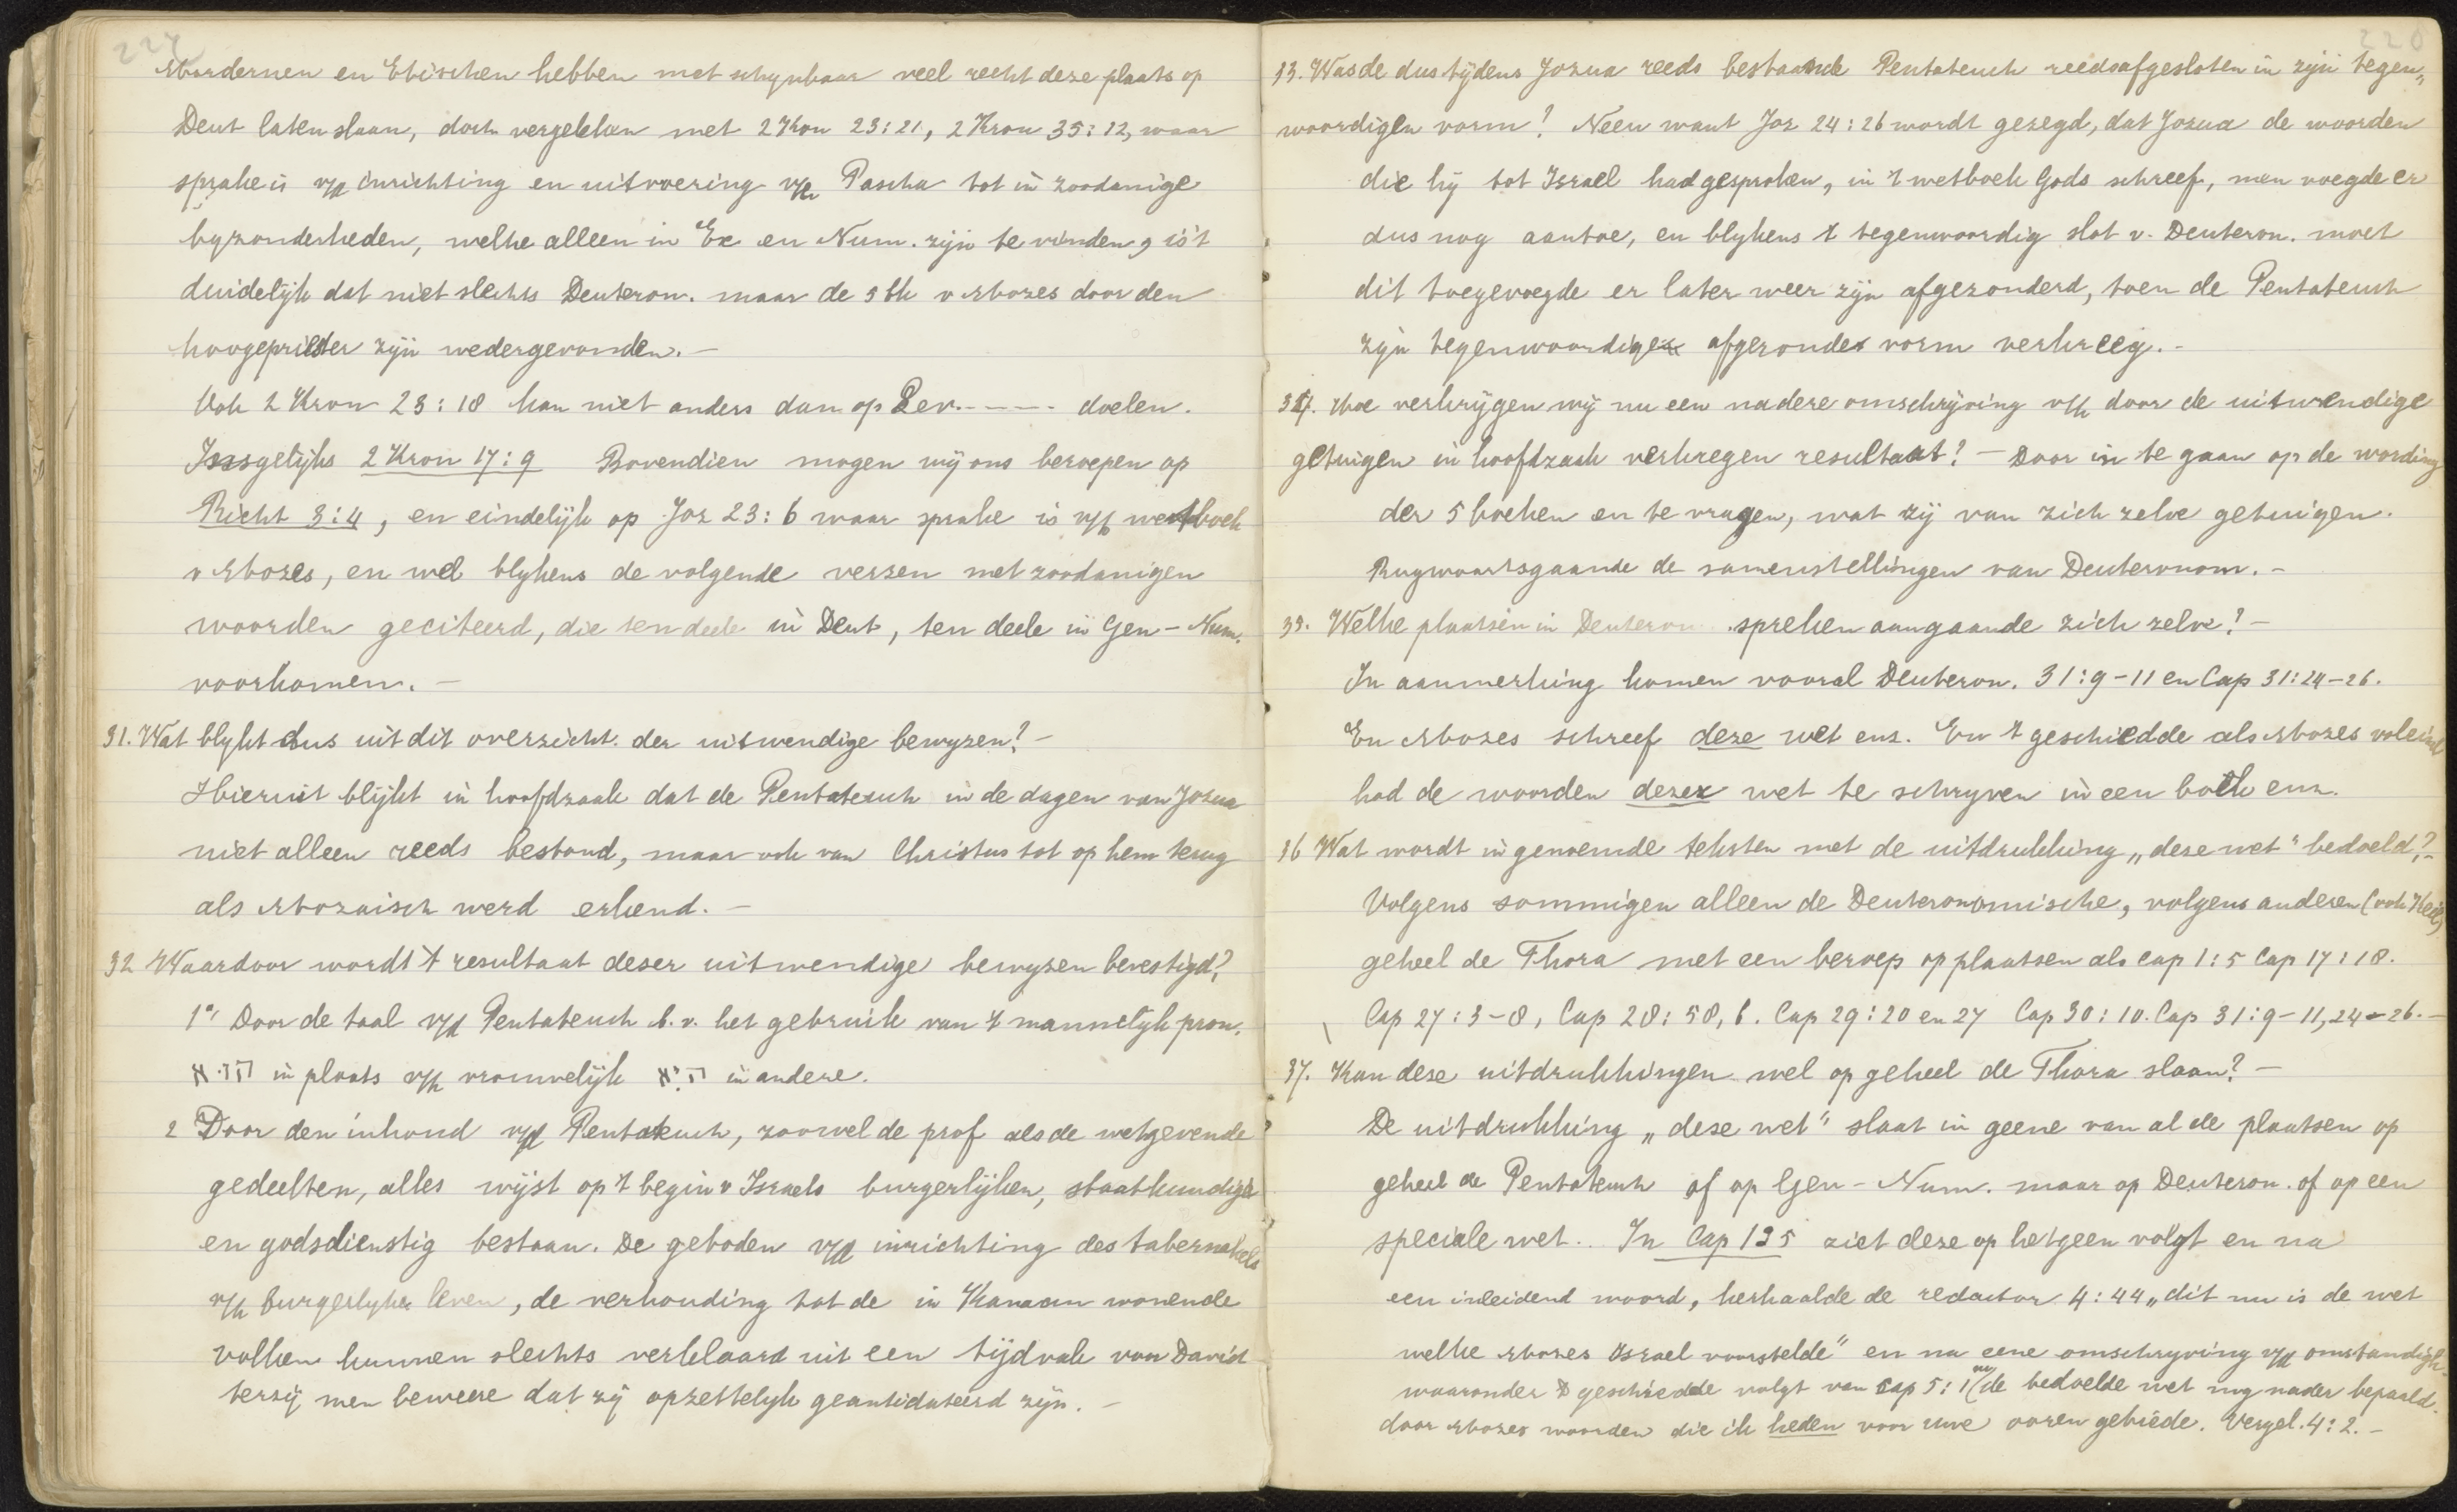 227
Modernen en Ethischen hebben met schynbaar veel recht deze plaats op
Deut laten slaan, doch vergeleken met 2 Kon 23:21, 2 Kron 35:12, waar
sprake is v/d inrichting en uitvoering v/h Pascha tot in zoodanige
byzonderheden, welke alleen in Ex en Num. zijn te vinden, is 't
duidelijk dat niet slechts Deuteron. maar de 5 bk v Mozes door den
hoogepriester zijn wedergevonden. —
Ook 2 Kron 23:18 kan niet anders dan op Lev.---- doelen.
Insgelijks 2 Kron 17:9 Bovendien mogen wij ons beroepen op
Richt 3:4, en eindelijk op Joz 23:6 waar sprake is v/h wetboek
v Mozes, en wel blykens de volgende verzen met zoodanigen
woorden geciteerd, die ten deele in Deut, ten deele in Gen – Num.
voorkomen. —
31. Wat blykt dus uit dit overzicht der uitwendige bewyzen? —
Hieruit blijkt in hoofdzaak dat de Pentateuch in de dagen van Jozua
niet alleen reeds bestond, maar ook van Christus tot op hem terug
als Mozaisch werd erkend. —
32 Waardoor wordt 't resultaat dezer uitwendige bewyzen bevestigd?
1o, Door de taal v/d Pentateuch b.v. het gebruik van 't mannelijk pron.
הוּא in plaats v/h vrouwelijk הִיא in andere.
2 Door den inhoud v/d Pentateuch, zoowel de prof als de wetgevende
gedeelten, alles wijst op 't begin v Israels burgerlijken, staatkundige
en godsdienstig bestaan. De geboden v/d inrichting des tabernakels
v/h burgerlyke leven, de verhouding tot de in Kanaan wonende
volken kunnen slechts verklaard uit een tijdvak voor David
terzij men beweere dat zij opzettelyk geantidateerd zijn. —
228
33. Was de dus tijdens Jozua reeds bestaande Pentateuch reeds afgesloten in zijn tegen„
woordigen vorm? Neen want Joz 24:26 wordt gezegd, dat Jozua de woorden
die hij tot Israel had gesproken, in 't wetboek Gods schreef, men voegde er
dus nog aan toe, en blykens 't tegenwoordig slot v. Deuteron. moet
dit toegevoegde er later weer zijn afgezonderd, toen de Pentateuch
zijn tegenwoordigen afgeronde vorm verkreeg. -
34. Hoe verkrijgen wij nu een nadere omschrijving v/h door de uitwendige
getuigen in hoofdzaak verkregen resultaat? — Door in te gaan op de wording
der 5 boeken en te vragen, wat zij van zich zelve getuigen.
Rugwaartsgaande de samenstellingen van Deuteronom. -
35. Welke plaatsen in Deuteron. spreken aangaande zich zelve? —
In aanmerking komen vooral Deuteron. 31:9-11 en Cap 31:24-26.
En Mozes schreef deze wet enz. En 't geschiedde als Mozes voleind
had de woorden dezer wet te schryven in een boek enz.
36 Wat wordt in genoemde teksten met de uitdrukking „deze wet" bedoeld? -
Volgens sommigen alleen de Deuteronomische, volgens anderen (ook Keil)
geheel de Thora met een beroep op plaatsen als cap 1:5 Cap 17:18.
Cap 27:3-8, Cap 28:58,6. Cap 29:20 en 27 Cap 30:10. Cap 31:9-11, 24-26. —
37. Kan deze uitdrukkingen wel op geheel de Thora slaan? —
De uitdrukking „deze wet" slaat in geene van al de plaatsen op
geheel de Pentateuch of op Gen – Num. maar op Deuteron. of op een
speciale wet. . In Cap 1:5 ziet deze op hetgeen volgt en na
een inleidend woord, herhaalde de redactor 4:44 „dit nu is de wet
welke Mozes Israel voorstelde" en na eene omschryving v/d omstandigh.
waaronder 't geschiedde volgt van Cap 5:1 de bedoelde wet nog nader bepaald
door Mozes woorden die ik heden voor uwe ooren gebiede. Vergel. 4:2. —